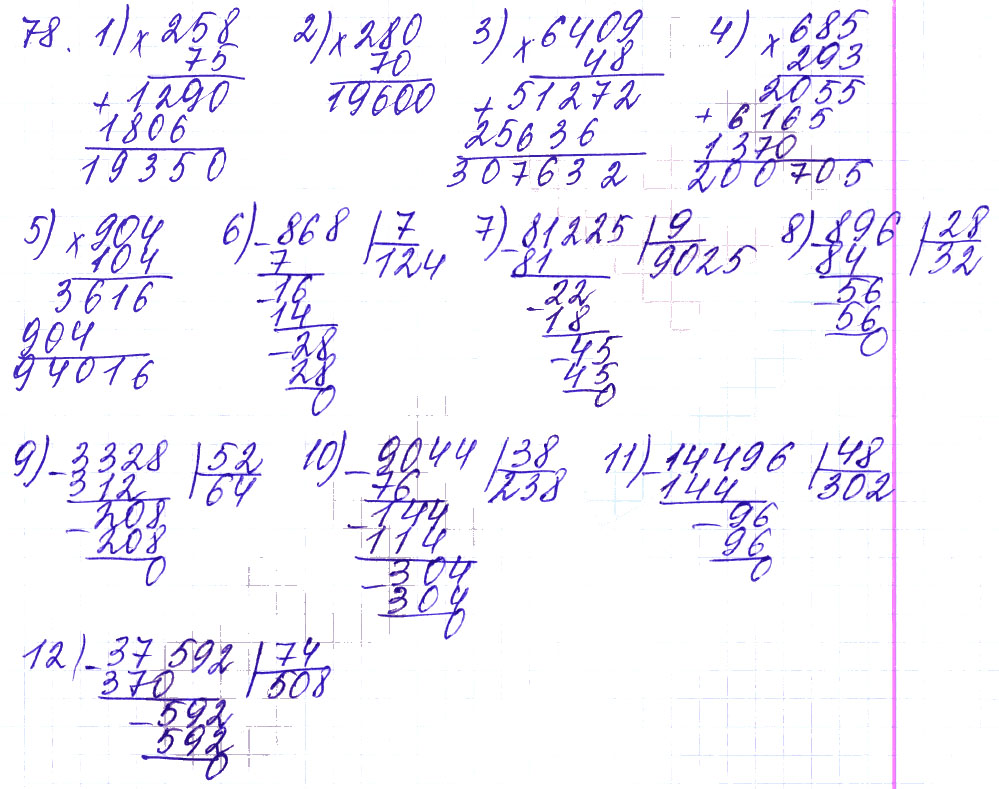 78. 1) × 258 2) × 280 3) × 6409 4) × 685
75 70 48 293
+ 1290 19600 + 51272 2055
1806 25636 + 6165
19350 307632 1370
200705
5) × 904 6) - 868 | 7 7) - 81225 | 9 8) - 896 | 28
104 7 124 81 9025 84 32
3616 - 16 - 22 - 56
904 14 18 56
94016 - 28 - 45 0
28 45
0 0
9) - 3328 | 52 10) - 9044 | 38 11) - 14496 | 48
312 64 76 238 144 302
- 208 - 144 - 96
208 114 96
0 - 304 0
304
0
12) - 37592 | 74
370 508
- 592
592
0